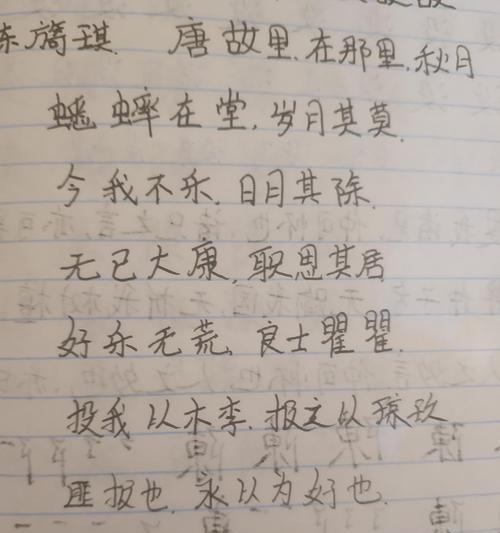 旖琪. 唐 故里.在那里.秋月
蟋蟀在堂.岁月其莫.
今我不乐.日月其除.
无已大康.职思其居
好乐无荒.良士瞿瞿.
投我以木李.报之以琼玖
匪报也.永以为好也.